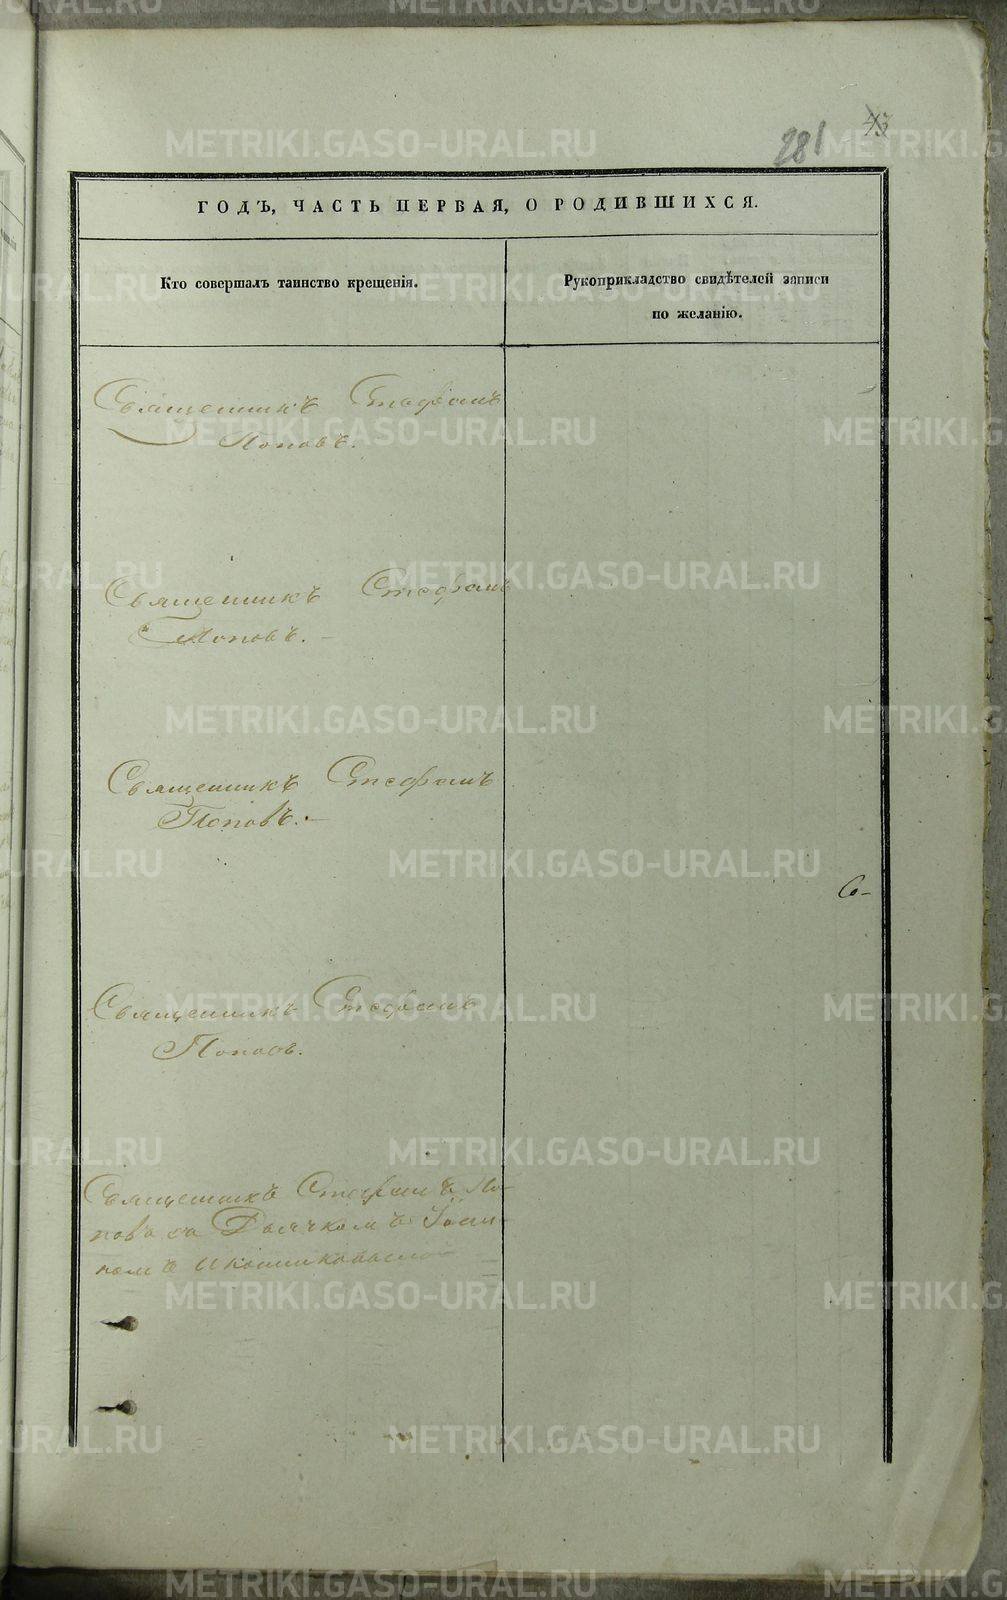 281 43
ГОДЪ, ЧАСТЬ ПЕРВАЯ, О РОДИВШИХСЯ.
Кто совершалъ таинство крещенія.
Рукоприкладство свидѣтелей записи
по желанію.
Священникъ Стефанъ
Поповъ.
Священникъ Стефанъ
Поповъ. –
Священникъ Стефанъ
Поповъ. –
Со-
Священникъ Стефанъ
Поповъ.
Священникъ Стефанъ По-
повъ съ Дьячкомъ
METRIKI.GASO-URAL.RU